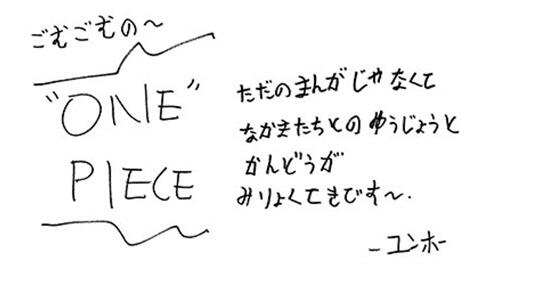 ごむごむの～
"ONE"
PIECE
ただのまんがじゃなくて
なかまたちとのゆうじょうと
かんどうが
みりょくてきです～.
-ユンホー